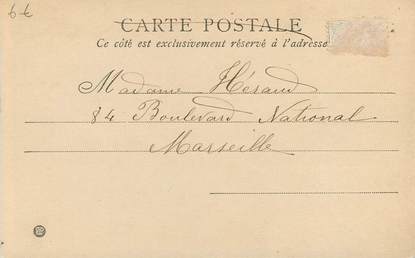 6€
CARTE POSTALE
Ce côté est exclusivement réservé à l'adresse
Madame Héraud
84 Boulevard National
Marseille